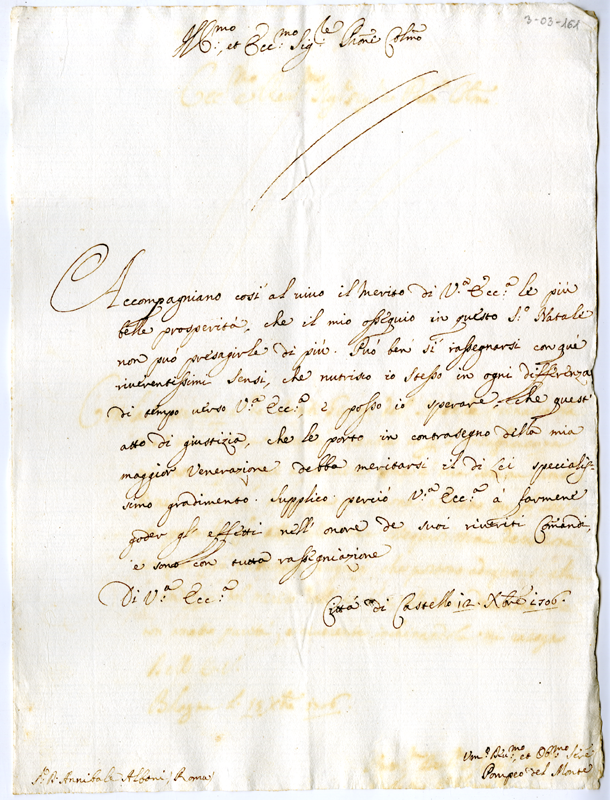 3-03-161
Ill.mo, et Ecc.mo Sig.re Pron̄e Col.mo
Accompagniano così al vivo il Merito di V.ª Ecc.ª le più
belle prosperità, che il mio ossequio in questo S.º Natale
non può presagirle di più. Può ben sì rassegnarsi con què
riverentissimi sensi, che nutrisco io stesso in ogni differenza
di tempo verso V.ª Ecc.ª e posso io sperare, che quest'
atto di giustizia, che le porto in contrasegno della mia
maggior Venerazione debba meritarsi il di Lei specialis-
simo gradimento. Supplico perciò V.ª Ecc.ª à farmene
goder gl'effetti nell'onore de suoi riveriti Comandi,
e sono con tutta rassegniazione
Di V.ª Ecc.ª
Città di Castello 12. Xbre 1706.
Um.º Div.mo, et Obl.mo Ser.e
Pompeo del Monte
Annibale Albani Roma
Bologna